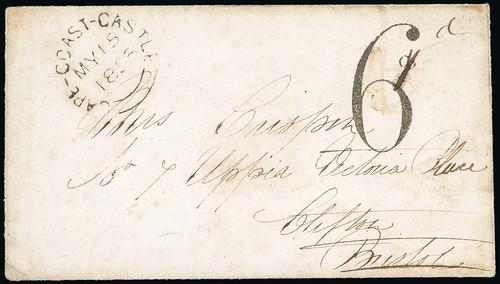 CAPE-COAST-CASTLE
MY 15
6 d
Mrs Crispin
No 7 Uppia Victoria Place
Clifton
Bristol